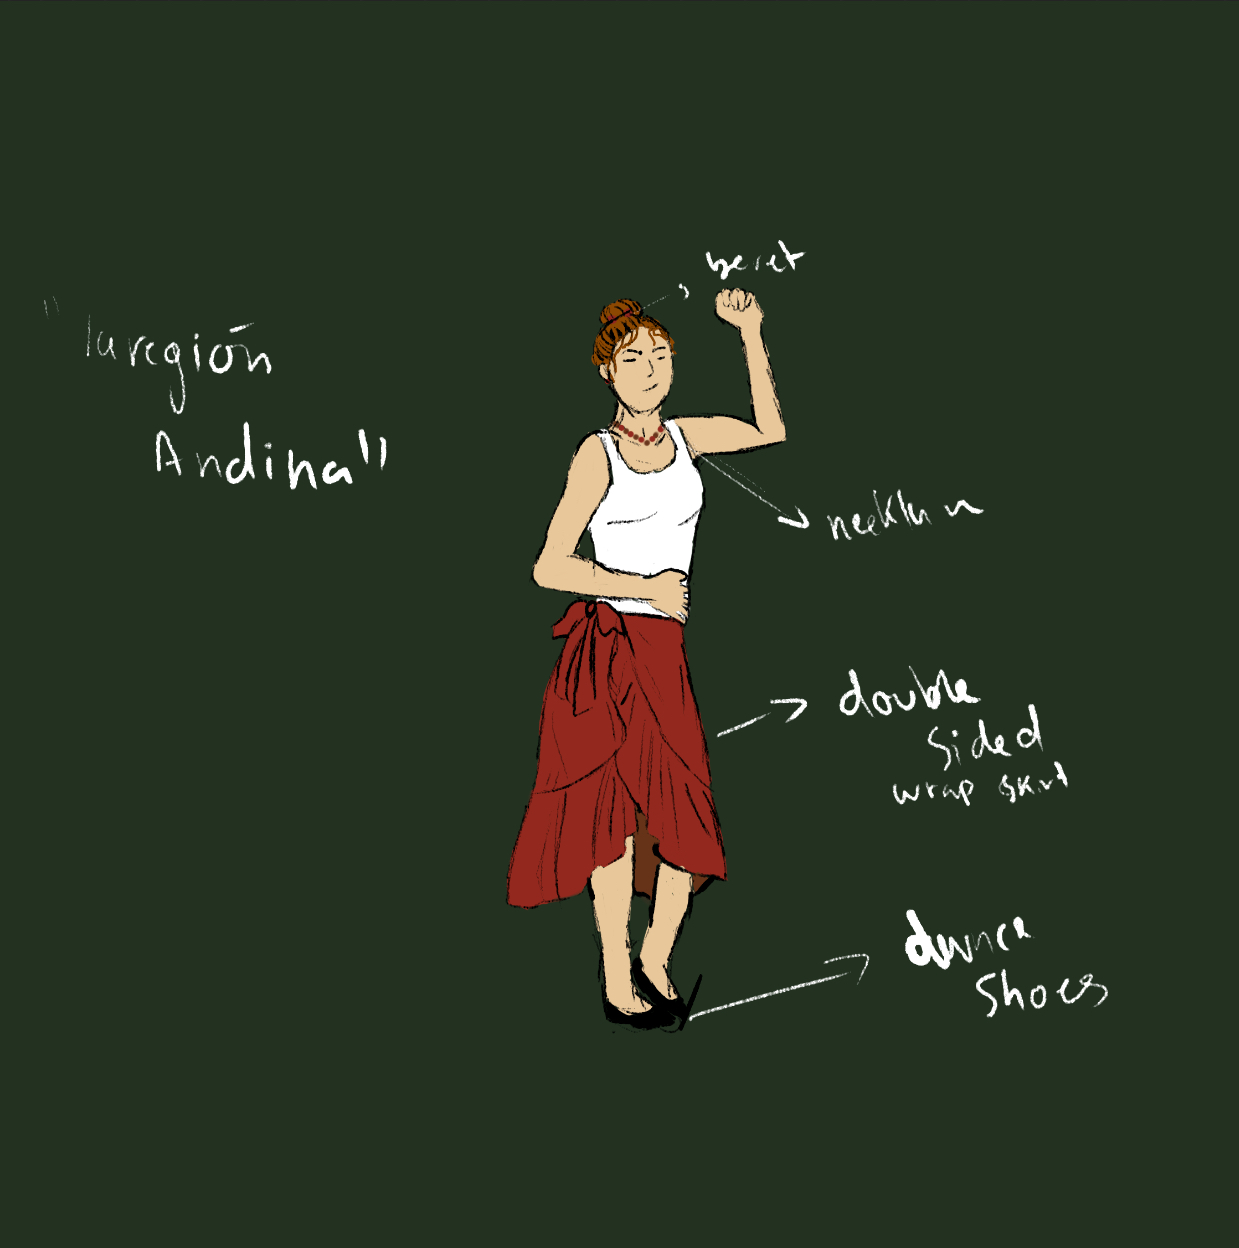 "la región
Andina"
beret
double
sided
wrap skirt
dance
shoes